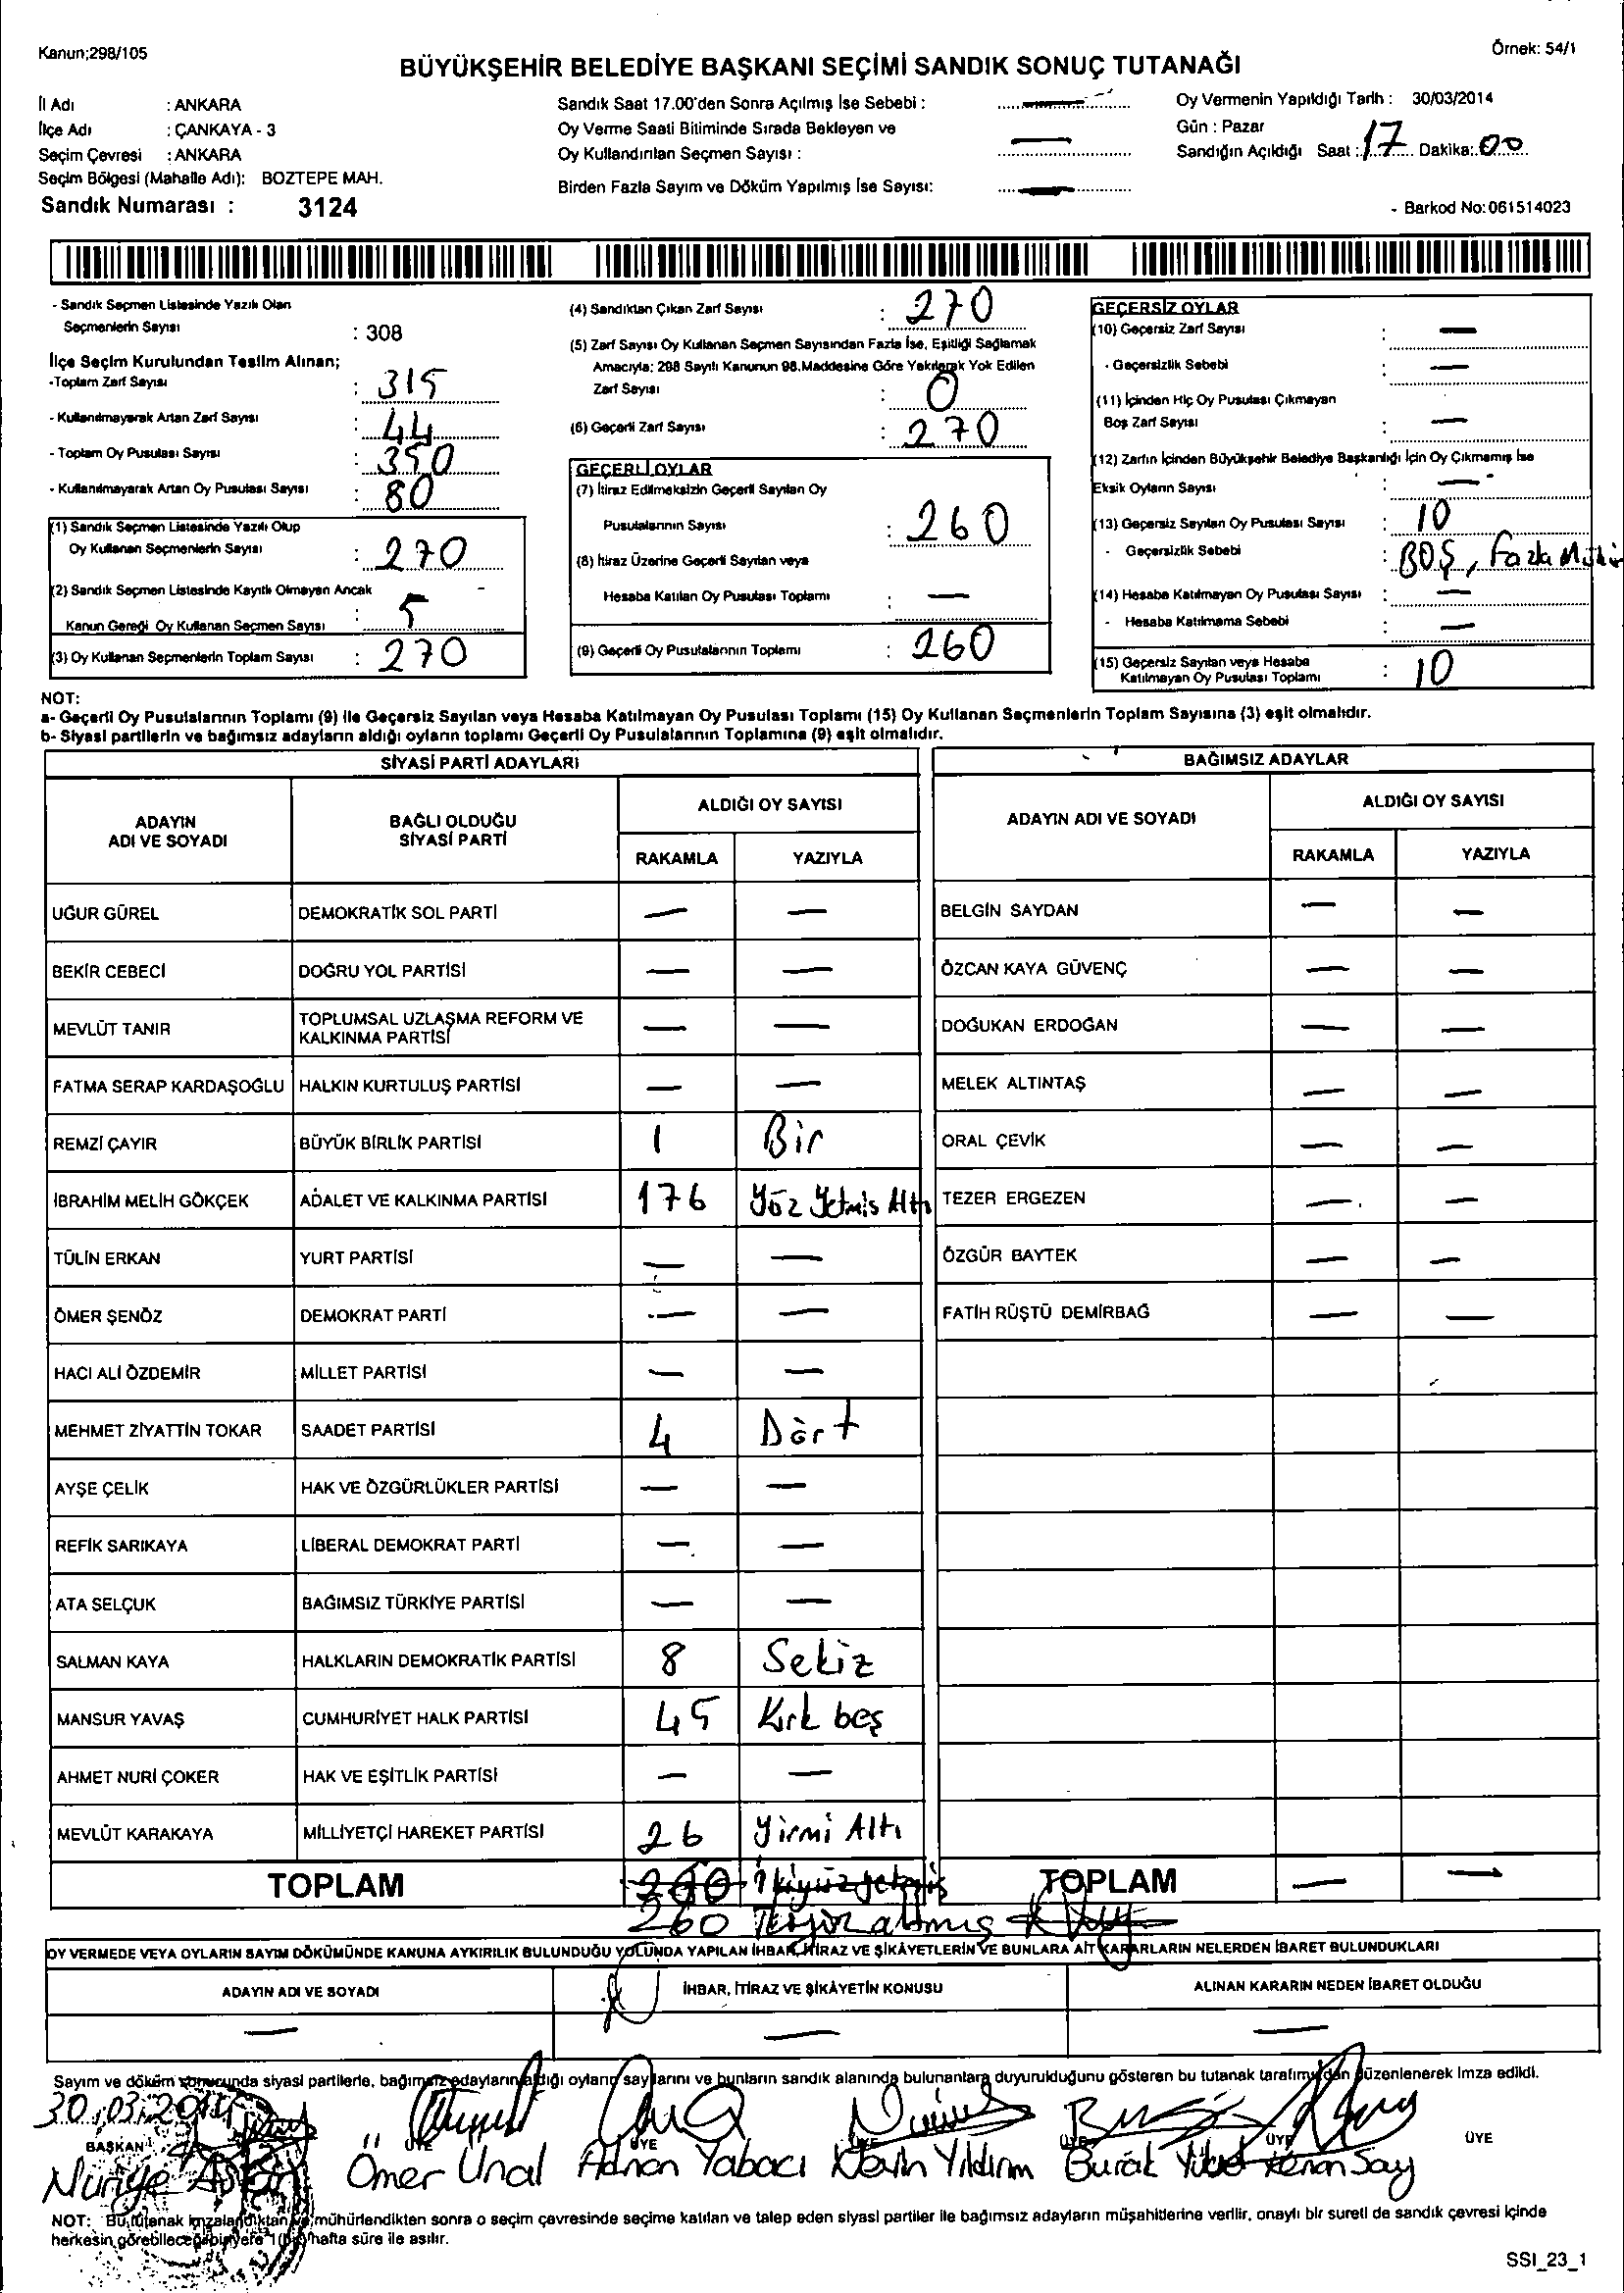 Kanun;298/105
Örnek: 54/1
BÜYÜKŞEHİR BELEDİYE BAŞKANI SEÇİMİ SANDIK SONUÇ TUTANAĞI
İl Adı : ANKARA
İlçe Adı : ÇANKAYA - 3
Seçim Çevresi : ANKARA
Seçim Bölgesi (Mahalle Adı): BOZTEPE MAH.
Sandık Numarası : 3124
Sandık Saat 17.00'den Sonra Açılmış İse Sebebi : —
Oy Verme Saati Bitiminde Sırada Bekleyen ve
Oy Kullandırılan Seçmen Sayısı : —
Birden Fazla Sayım ve Döküm Yapılmış İse Sayısı: —
Oy Vermenin Yapıldığı Tarih : 30/03/2014
Gün : Pazar
Sandığın Açıldığı Saat : 17 Dakika: 00
- Barkod No:061514023
- Sandık Seçmen Listesinde Yazılı Olan
Seçmenlerin Sayısı : 308
İlçe Seçim Kurulundan Teslim Alınan;
-Toplam Zarf Sayısı : 315
- Kullanılmayarak Artan Zarf Sayısı : 44
- Toplam Oy Pusulası Sayısı : 350
- Kullanılmayarak Artan Oy Pusulası Sayısı : 80
(1) Sandık Seçmen Listesinde Yazılı Olup
Oy Kullanan Seçmenlerin Sayısı : 270
(2) Sandık Seçmen Listesinde Kayıtlı Olmayan Ancak
Kanun Gereği Oy Kullanan Seçmen Sayısı : 5
(3) Oy Kullanan Seçmenlerin Toplam Sayısı : 270
(4) Sandıktan Çıkan Zarf Sayısı : 270
(5) Zarf Sayısı Oy Kullanan Seçmen Sayısından Fazla İse, Eşitliği Sağlamak
Amacıyla; 298 Sayılı Kanunun 98.Maddesine Göre Yakılarak Yok Edilen
Zarf Sayısı : 0
(6) Geçerli Zarf Sayısı : 270
GEÇERLİ OYLAR
(7) İtiraz Edilmeksizin Geçerli Sayılan Oy
Pusulalarının Sayısı : 260
(8) İtiraz Üzerine Geçerli Sayılan veya
Hesaba Katılan Oy Pusulası Toplamı : —
(9) Geçerli Oy Pusulalarının Toplamı : 260
GEÇERSİZ OYLAR
(10) Geçersiz Zarf Sayısı : —
- Geçersizlik Sebebi : —
(11) İçinden Hiç Oy Pusulası Çıkmayan
Boş Zarf Sayısı : —
(12) Zarfın İçinden Büyükşehir Belediye Başkanlığı İçin Oy Çıkmamış İse
Eksik Oyların Sayısı : —
(13) Geçersiz Sayılan Oy Pusulası Sayısı : 10
- Geçersizlik Sebebi : BOŞ, Fazla
(14) Hesaba Katılmayan Oy Pusulası Sayısı : —
- Hesaba Katılmama Sebebi : —
(15) Geçersiz Sayılan veya Hesaba
Katılmayan Oy Pusulası Toplamı : 10
NOT:
a- Geçerli Oy Pusulalarının Toplamı (9) ile Geçersiz Sayılan veya Hesaba Katılmayan Oy Pusulası Toplamı (15) Oy Kullanan Seçmenlerin Toplam Sayısına (3) eşit olmalıdır.
b- Siyasi partilerin ve bağımsız adayların aldığı oyların toplamı Geçerli Oy Pusulalarının Toplamına (9) eşit olmalıdır.
SİYASİ PARTİ ADAYLARI
ADAYIN ADI VE SOYADI
BAĞLI OLDUĞU SİYASİ PARTİ
ALDIĞI OY SAYISI
RAKAMLA YAZIYLA
UĞUR GÜREL DEMOKRATİK SOL PARTİ — —
BEKİR CEBECİ DOĞRU YOL PARTİSİ — —
MEVLÜT TANIR TOPLUMSAL UZLAŞMA REFORM VE KALKINMA PARTİSİ — —
FATMA SERAP KARDAŞOĞLU HALKIN KURTULUŞ PARTİSİ — —
REMZİ ÇAYIR BÜYÜK BİRLİK PARTİSİ 1 Bir
İBRAHİM MELİH GÖKÇEK ADALET VE KALKINMA PARTİSİ 176 Yüz Yetmis Altı
TÜLİN ERKAN YURT PARTİSİ — —
ÖMER ŞENÖZ DEMOKRAT PARTİ — —
HACI ALİ ÖZDEMİR MİLLET PARTİSİ — —
MEHMET ZİYATTİN TOKAR SAADET PARTİSİ 4 Dört
AYŞE ÇELİK HAK VE ÖZGÜRLÜKLER PARTİSİ — —
REFİK SARIKAYA LİBERAL DEMOKRAT PARTİ — —
ATA SELÇUK BAĞIMSIZ TÜRKİYE PARTİSİ — —
SALMAN KAYA HALKLARIN DEMOKRATİK PARTİSİ 8 Sekiz
MANSUR YAVAŞ CUMHURİYET HALK PARTİSİ 45 Kırk beş
AHMET NURİ ÇOKER HAK VE EŞİTLİK PARTİSİ — —
MEVLÜT KARAKAYA MİLLİYETÇİ HAREKET PARTİSİ 26 Yirmi Altı
TOPLAM
260 İkiyüz altmış
BAĞIMSIZ ADAYLAR
ADAYIN ADI VE SOYADI
ALDIĞI OY SAYISI
RAKAMLA YAZIYLA
BELGİN SAYDAN — —
ÖZCAN KAYA GÜVENÇ — —
DOĞUKAN ERDOĞAN — —
MELEK ALTINTAŞ — —
ORAL ÇEVİK — —
TEZER ERGEZEN — —
ÖZGÜR BAYTEK — —
FATİH RÜŞTÜ DEMİRBAĞ — —
TOPLAM — —
OY VERMEDE VEYA OYLARIN SAYIM DÖKÜMÜNDE KANUNA AYKIRILIK BULUNDUĞU YOLUNDA YAPILAN İHBAR, İTİRAZ VE ŞİKÂYETLERİN VE BUNLARA AİT KARARLARIN NELERDEN İBARET BULUNDUKLARI
ADAYIN ADI VE SOYADI İHBAR, İTİRAZ VE ŞİKÂYETİN KONUSU ALINAN KARARIN NEDEN İBARET OLDUĞU
— — —
Sayım ve döküm sonucunda siyasi partilerle, bağımsız adayların aldığı oyların sayılarını ve bunların sandık alanında bulunanlara duyurulduğunu gösteren bu tutanak tarafımızdan düzenlenerek imza edildi.
30.03.2014
BAŞKAN ÜYE ÜYE ÜYE ÜYE ÜYE ÜYE
Nuriye Ömer Ünal Adnan Yabacı Yıldırım Burak Kenan Say
NOT: Bu tutanak imzalandıktan ve mühürlendikten sonra o seçim çevresinde seçime katılan ve talep eden siyasi partiler ile bağımsız adayların müşahitlerine verilir, onaylı bir sureti de sandık çevresi içinde
herkesin görebileceği bir yere 1(bir) hafta süre ile asılır.
SSI_23_1